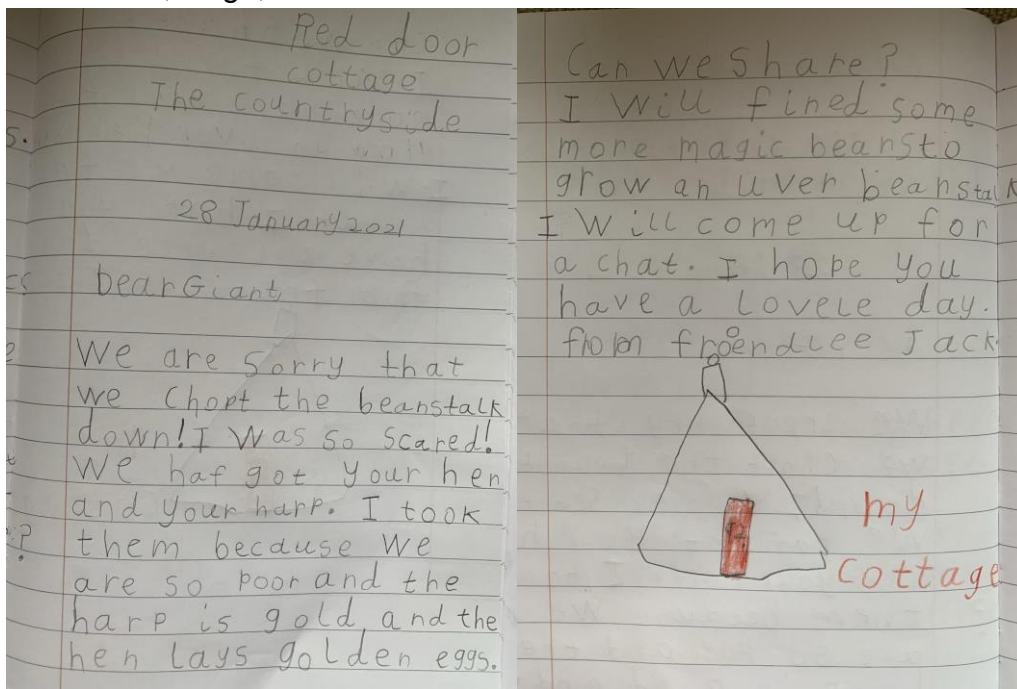 Red door
cottage
The countryside
28 January 2021
Dear Giant,
We are sorry that
we chopt the beanstalk
down! I was so scared!
We haf got your hen
and your harp. I took
them because we
are so poor and the
harp is gold and the
hen lays golden eggs.
Can we share?
I will fined some
more magic beans to
grow an uver beanstalk
I will come up for
a chat. I hope you
have a lovele day.
from froendlee Jack
my
cottage